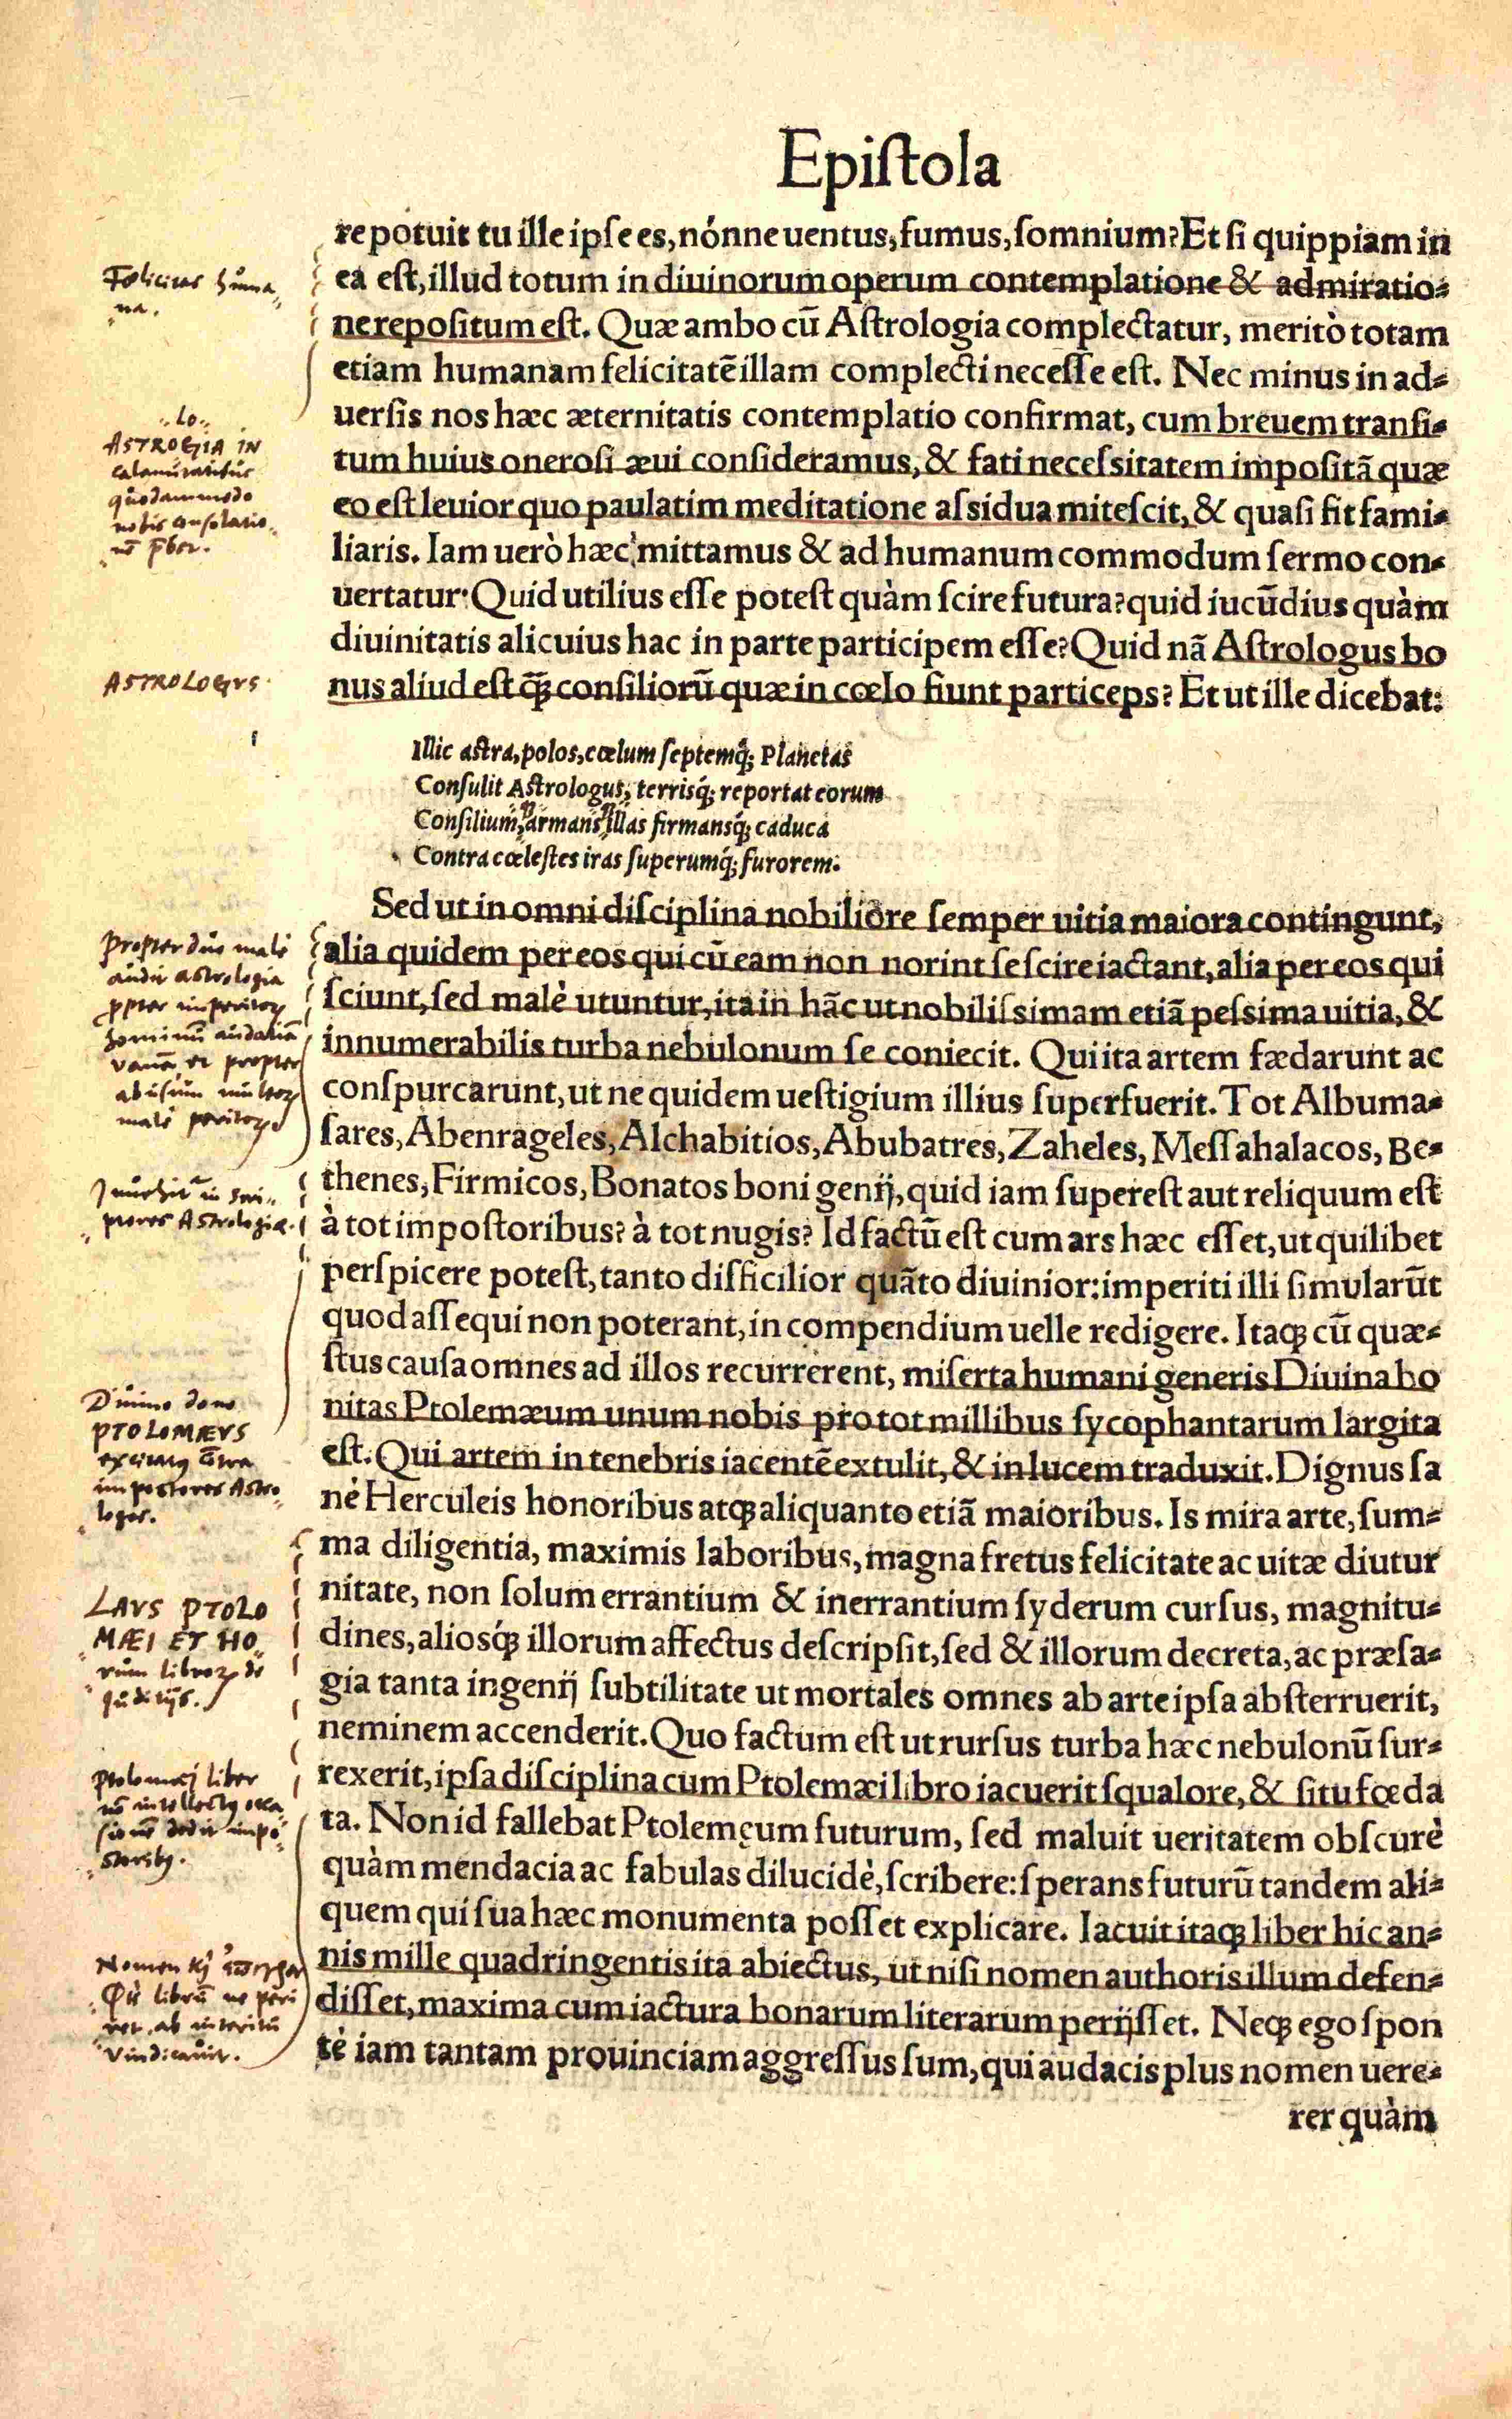 Epiſtola
re potuit tu ille ipſe es, nónne uentus, fumus, ſomnium? Et ſi quippiam in
ea eſt, illud totum in diuinorum operum contemplatione & admiratio-
ne repoſitum eſt. Quæ ambo cū Aſtrologia complectatur, meritò totam
etiam humanam felicitatē illam complecti neceſſe eſt. Nec minus in ad-
uerſis nos hæc æternitatis contemplatio confirmat, cum breuem tranſi-
tum huius oneroſi æui conſideramus, & fati neceſsitatem impoſitā quæ
eo eſt leuior quo paulatim meditatione aſsidua miteſcit, & quaſi fit fami-
liaris. Iam uerò hæc mittamus & ad humanum commodum ſermo con-
uertatur: Quid utilius eſſe poteſt quàm ſcire futura? quid iucūdius quàm
diuinitatis alicuius hac in parte participem eſſe? Quid nā Aſtrologus bo
nus aliud eſt q̃ꝫ conſiliorū quæ in cœlo fiunt particeps? Et ut ille dicebat:
Illic aſtra, polos, cœlum ſeptemq́; Planetas
Conſulit Aſtrologus, terrisq́; reportat eorum
Conſilium, armans illas firmansq́; caduca
Contra cœleſtes iras ſuperumq́; furorem.
Sed ut in omni diſciplina nobiliore ſemper uitia maiora contingunt,
alia quidem per eos qui cū eam non norint ſe ſcire iactant, alia per eos qui
ſciunt, ſed malè utuntur, ita in hāc ut nobiliſsimam etiā peſsima uitia, &
innumerabilis turba nebulonum ſe coniecit. Qui ita artem fædarunt ac
conſpurcarunt, ut ne quidem ueſtigium illius ſuperfuerit. Tot Albuma-
ſares, Abenrageles, Alchabitios, Abubatres, Zaheles, Meſſahalacos, Be-
thenes, Firmicos, Bonatos boni genij, quid iam ſupereſt aut reliquum eſt
à tot impoſtoribus? à tot nugis? Id factū eſt cum ars hæc eſſet, ut quilibet
perſpicere poteſt, tanto difficilior quāto diuinior: imperiti illi ſimularūt
quod aſſequi non poterant, in compendium uelle redigere. Itaqꝫ cū quæ-
ſtus cauſa omnes ad illos recurrerent, miſerta humani generis Diuina bo
nitas Ptolemæum unum nobis pro tot millibus ſycophantarum largita
eſt. Qui artem in tenebris iacentē extulit, & in lucem traduxit. Dignus ſa
nè Herculeis honoribus atqꝫ aliquanto etiā maioribus. Is mira arte, ſum-
ma diligentia, maximis laboribus, magna fretus felicitate ac uitæ diutur
nitate, non ſolum errantium & inerrantium ſyderum curſus, magnitu-
dines, aliosq́ꝫ illorum affectus deſcripſit, ſed & illorum decreta, ac præſa-
gia tanta ingenij ſubtilitate ut mortales omnes ab arte ipſa abſterruerit,
neminem accenderit. Quo factum eſt ut rurſus turba hæc nebulonū ſur-
rexerit, ipſa diſciplina cum Ptolemæi libro iacuerit ſqualore, & ſitu fœda
ta. Non id fallebat Ptolemęum futurum, ſed maluit ueritatem obſcurè
quàm mendacia ac fabulas dilucidè, ſcribere: ſperans futurū tandem ali-
quem qui ſua hæc monumenta poſſet explicare. Iacuit itaqꝫ liber hic an-
nis mille quadringentis ita abiectus, ut niſi nomen authoris illum defen-
diſſet, maxima cum iactura bonarum literarum perijſſet. Neqꝫ ego ſpon
tè iam tantam prouinciam aggreſſus ſum, qui audacis plus nomen uere-
rer quàm
huma
na.
lo
ASTROGIA IN
calamitatibus
quodammodo
nobis consolatio
ASTROLOGVS
Propter duo malè
audit astrologia
hominū audaciā
vanā et propter
abusum
malè
in
Astrologiæ.
Divino dono
PTOLOMÆVS
impostores Astro
logos.
LAVS PTOLO
MÆI ET HO
rum de
Ptolomæi liber
dedit impo
Nomen
librū ne peri
ret, ab interitu
vindicauit.